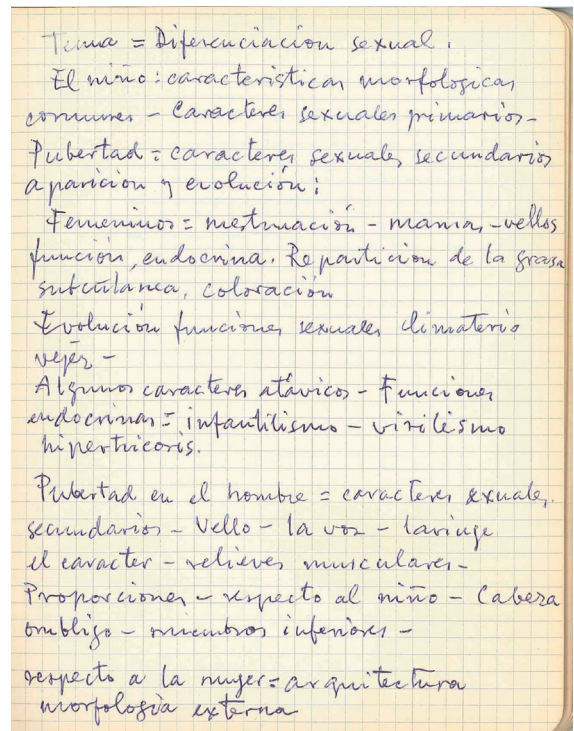 Tema = Diferenciación sexual.
El niño: características morfologicas
comunes - Caracteres sexuales primarios -
Pubertad = caracteres sexuales secundarios
aparición y evolución:
Femeninos = mestruación - mamas - vellos
función, endocrina. Reparticion de la grasa
subcutanea, coloración
Evolución funciones sexuales climaterio
vejéz -
Algunos caracteres atávicos - Funciones
endocrinas = infantilismo - virilismo
hipertricosis.
Pubertad en el hombre = caracteres sexuales
secundarios - Vello - la voz - laringe
el caracter - relieves musculares -
Proporciones - respecto al niño - Cabeza
ombligo - miembros inferiores -
respecto a la mujer = arquitectura
morfología externa